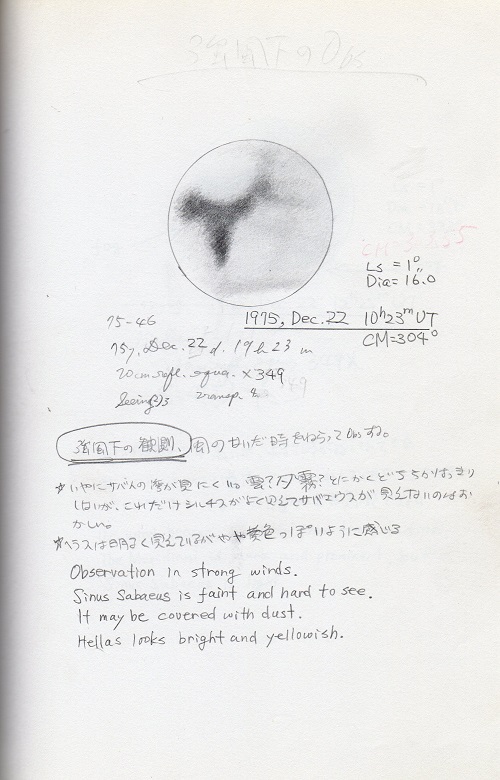 強風下のObs
Ls = 1°
Dia = 16.″0
75-46
1975, Dec. 22 10h23m UT
CM=304°
75y. Dec. 22 d. 19h 23 m
20cm refl. ×349
Seeing 3 transp.
強風下の観測、風のないだ時をねらってObsする。
☆いやにサバ人の湾が見にくい。雲?か霧?とにかくどちらかはっきり
しないが、これだけシルチスがよく見えてサバエウスが見えないのはお
かしい。
☆ヘラスは明るく見えているがやや黄色っぽいように感じる
Observation in strong winds.
Sinus Sabaeus is faint and hard to see.
It may be covered with dust.
Hellas looks bright and yellowish.